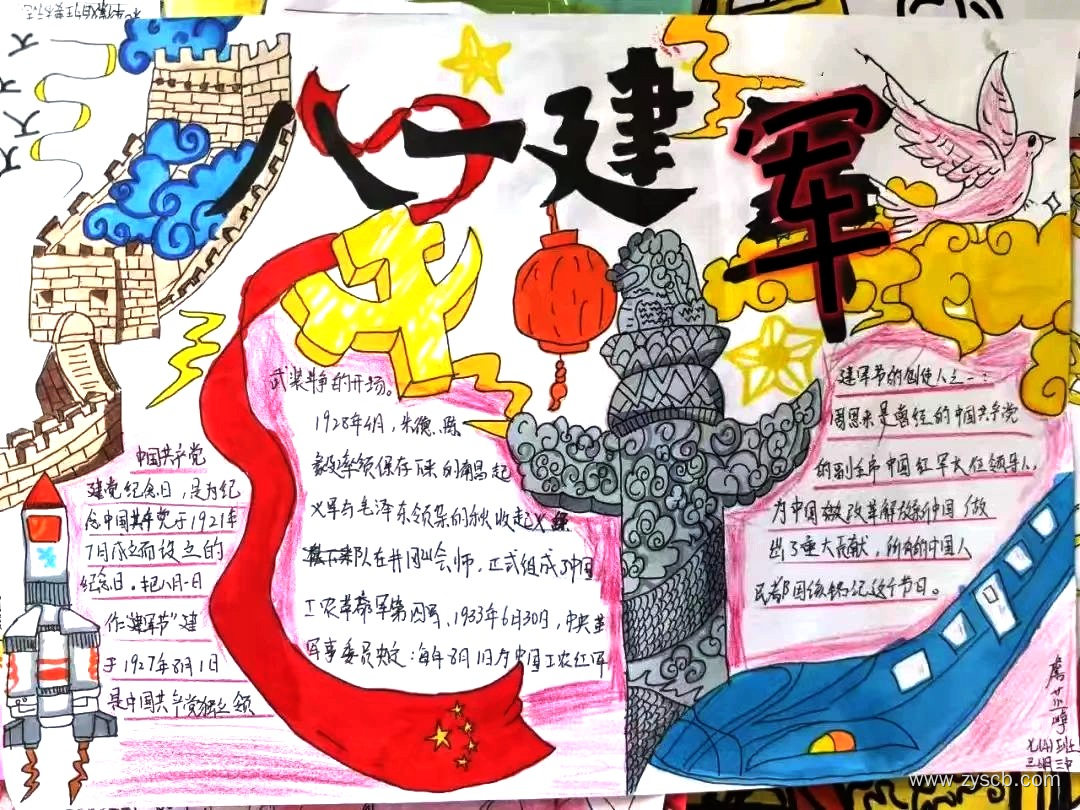 八一建军
中国共产党
建党纪念日，是为纪
念中国共产党于1921年
7月成立而设立的
纪念日。把八月一日
作"建军节"建
于1927年8月1日
是中国共产党独立领
武装斗争的开场。
1928年4月，朱德、陈
毅率领保存下来的南昌起
义军与毛泽东领导的秋收起义
队在井冈山会师，正式组成了中国
工农革命军第四军，1933年6月30日，中央革
军事委员决定：每年8月1日为中国工农红军
建军节的创使人之一：
周恩来是曾经的中国共产党
的副主席中国红军大位领导人，
为中国改革解放新中国做
出了重大贡献，所有的中国人
民都因该铭记这个节日。
七(4)班
三明三中
www.zyscb.com